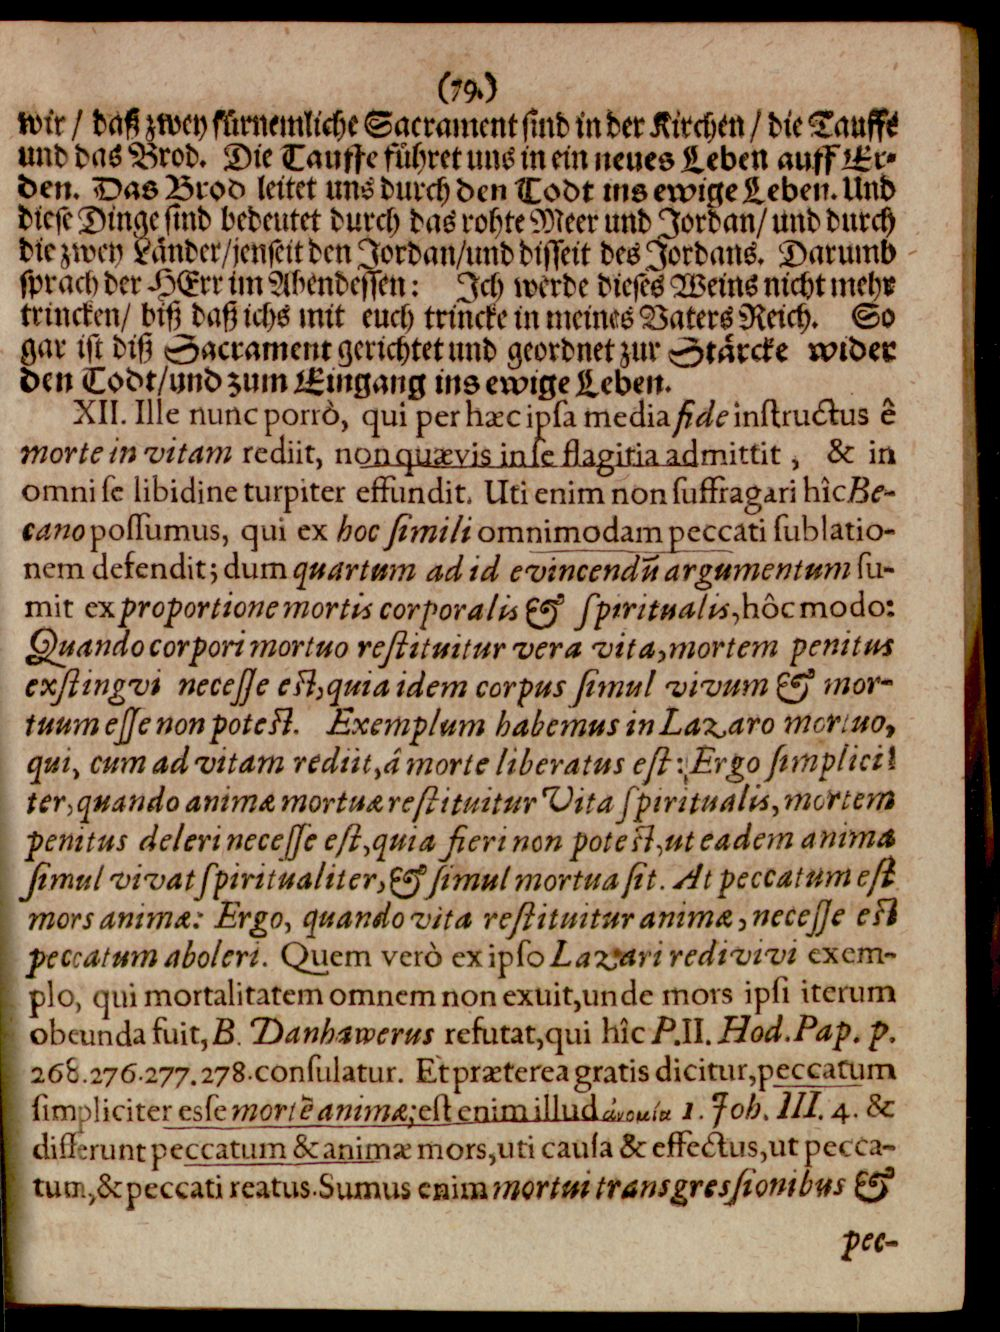 (79.)
wir / daß zwey fürnemliche Sacrament sind in der Kirchen / die Tauffe
und das Brod. Die Tauffe führet uns in ein neues Leben auff Er-
den. Das Brod leitet uns durch den Todt ins ewige Leben. Und
diese Dinge sind bedeutet durch das rohte Meer und Jordan / und durch
die zwey Länder / jenseit den Jordan / und disseit des Jordans. Darumb
sprach der HErr im Abendessen: Ich werde dieses Weins nicht mehr
trincken / biß daß ichs mit euch trincke in meines Vaters Reich. So
gar ist diß Sacrament gerichtet und geordnet zur Stärcke wider
den Todt / und zum Eingang ins ewige Leben.
XII. Ille nunc porrò, qui per hæc ipſa media fide inſtructus ê
morte in vitam rediit, non quævis in ſe flagitia admittit, & in
omni ſe libidine turpiter effundit. Uti enim non ſuffragari hîc Be-
cano poſſumus, qui ex hoc ſimili omnimodam peccati ſublatio-
nem defendit; dum quartum ad id evincendū argumentum ſu-
mit ex proportione mortis corporalis & ſpiritualis, hôc modo:
Quando corpori mortuo reſtituitur vera vita, mortem penitus
exſtingvi neceſſe eſt, quia idem corpus ſimul vivum & mor-
tuum eſſe non poteſt. Exemplum habemus in Lazaro mortuo,
qui, cum ad vitam rediit, â morte liberatus eſt: Ergo ſimplici-
ter, quando animæ mortuæ reſtituitur Vita ſpiritualis, mortem
penitus deleri neceſſe eſt, quia fieri non poteſt, ut eadem anima
ſimul vivat ſpiritualiter, & ſimul mortua ſit. At peccatum eſt
mors animæ: Ergo, quando vita reſtituitur animæ, neceſſe eſt
peccatum aboleri. Quem verò ex ipſo Lazari redivivi exem-
plo, qui mortalitatem omnem non exuit, unde mors ipſi iterum
obeunda fuit, B. Danhawerus refutat, qui hîc P. II. Hod. Pap. p.
268. 276. 277. 278. conſulatur. Et præterea gratis dicitur, peccatum
ſimpliciter esſe mortē animæ; eſt enim illud ἀνομία 1. Joh. III. 4. &
differunt peccatum & animæ mors, uti cauſa & effectus, ut pecca-
tum, & peccati reatus. Sumus enim mortui transgresſionibus &
pec-